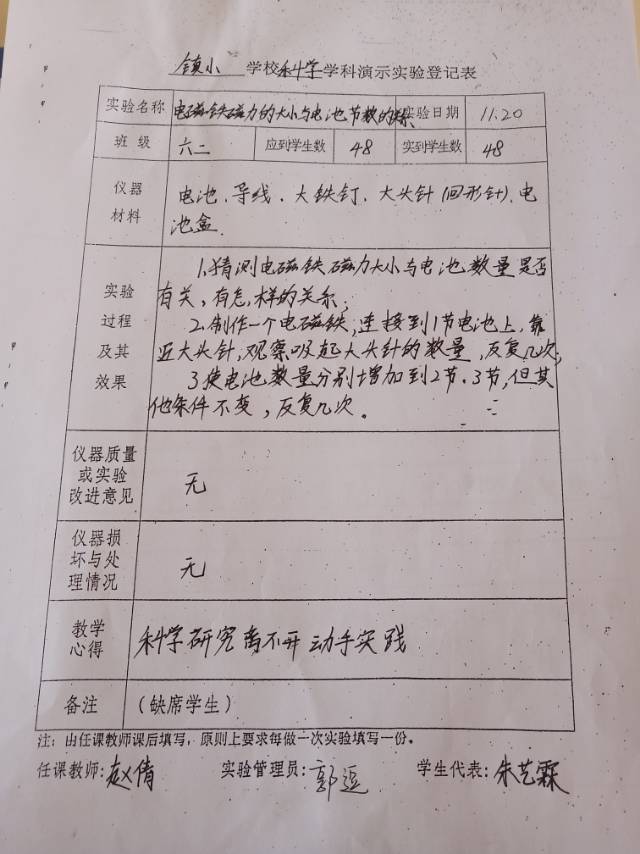 镇小 学校科学学科演示实验登记表
实验名称 电磁铁磁力的大小与电池节数的关系 实验日期 11.20
班 级 六二 应到学生数 48 实到学生数 48
仪器 电池、导线、大铁钉、大头针(回形针)、电
材料 池盒.
1.猜测电磁铁磁力大小与电池数量是否
实验 有关,有怎样的关系;
过程 2.制作一个电磁铁,连接到1节电池上,靠
及其 近大头针,观察吸起大头针的数量,反复几次;
效果 3.使电池数量分别增加到2节、3节,但其
他条件不变,反复几次。
仪器质量
或实验
改进意见 无
仪器损
坏与处
理情况 无
教学
心得 科学研究离不开动手实践
备注 (缺席学生)
注:由任课教师课后填写,原则上要求每做一次实验填写一份。
任课教师:赵倩 实验管理员:郭逗 学生代表:朱艺霖